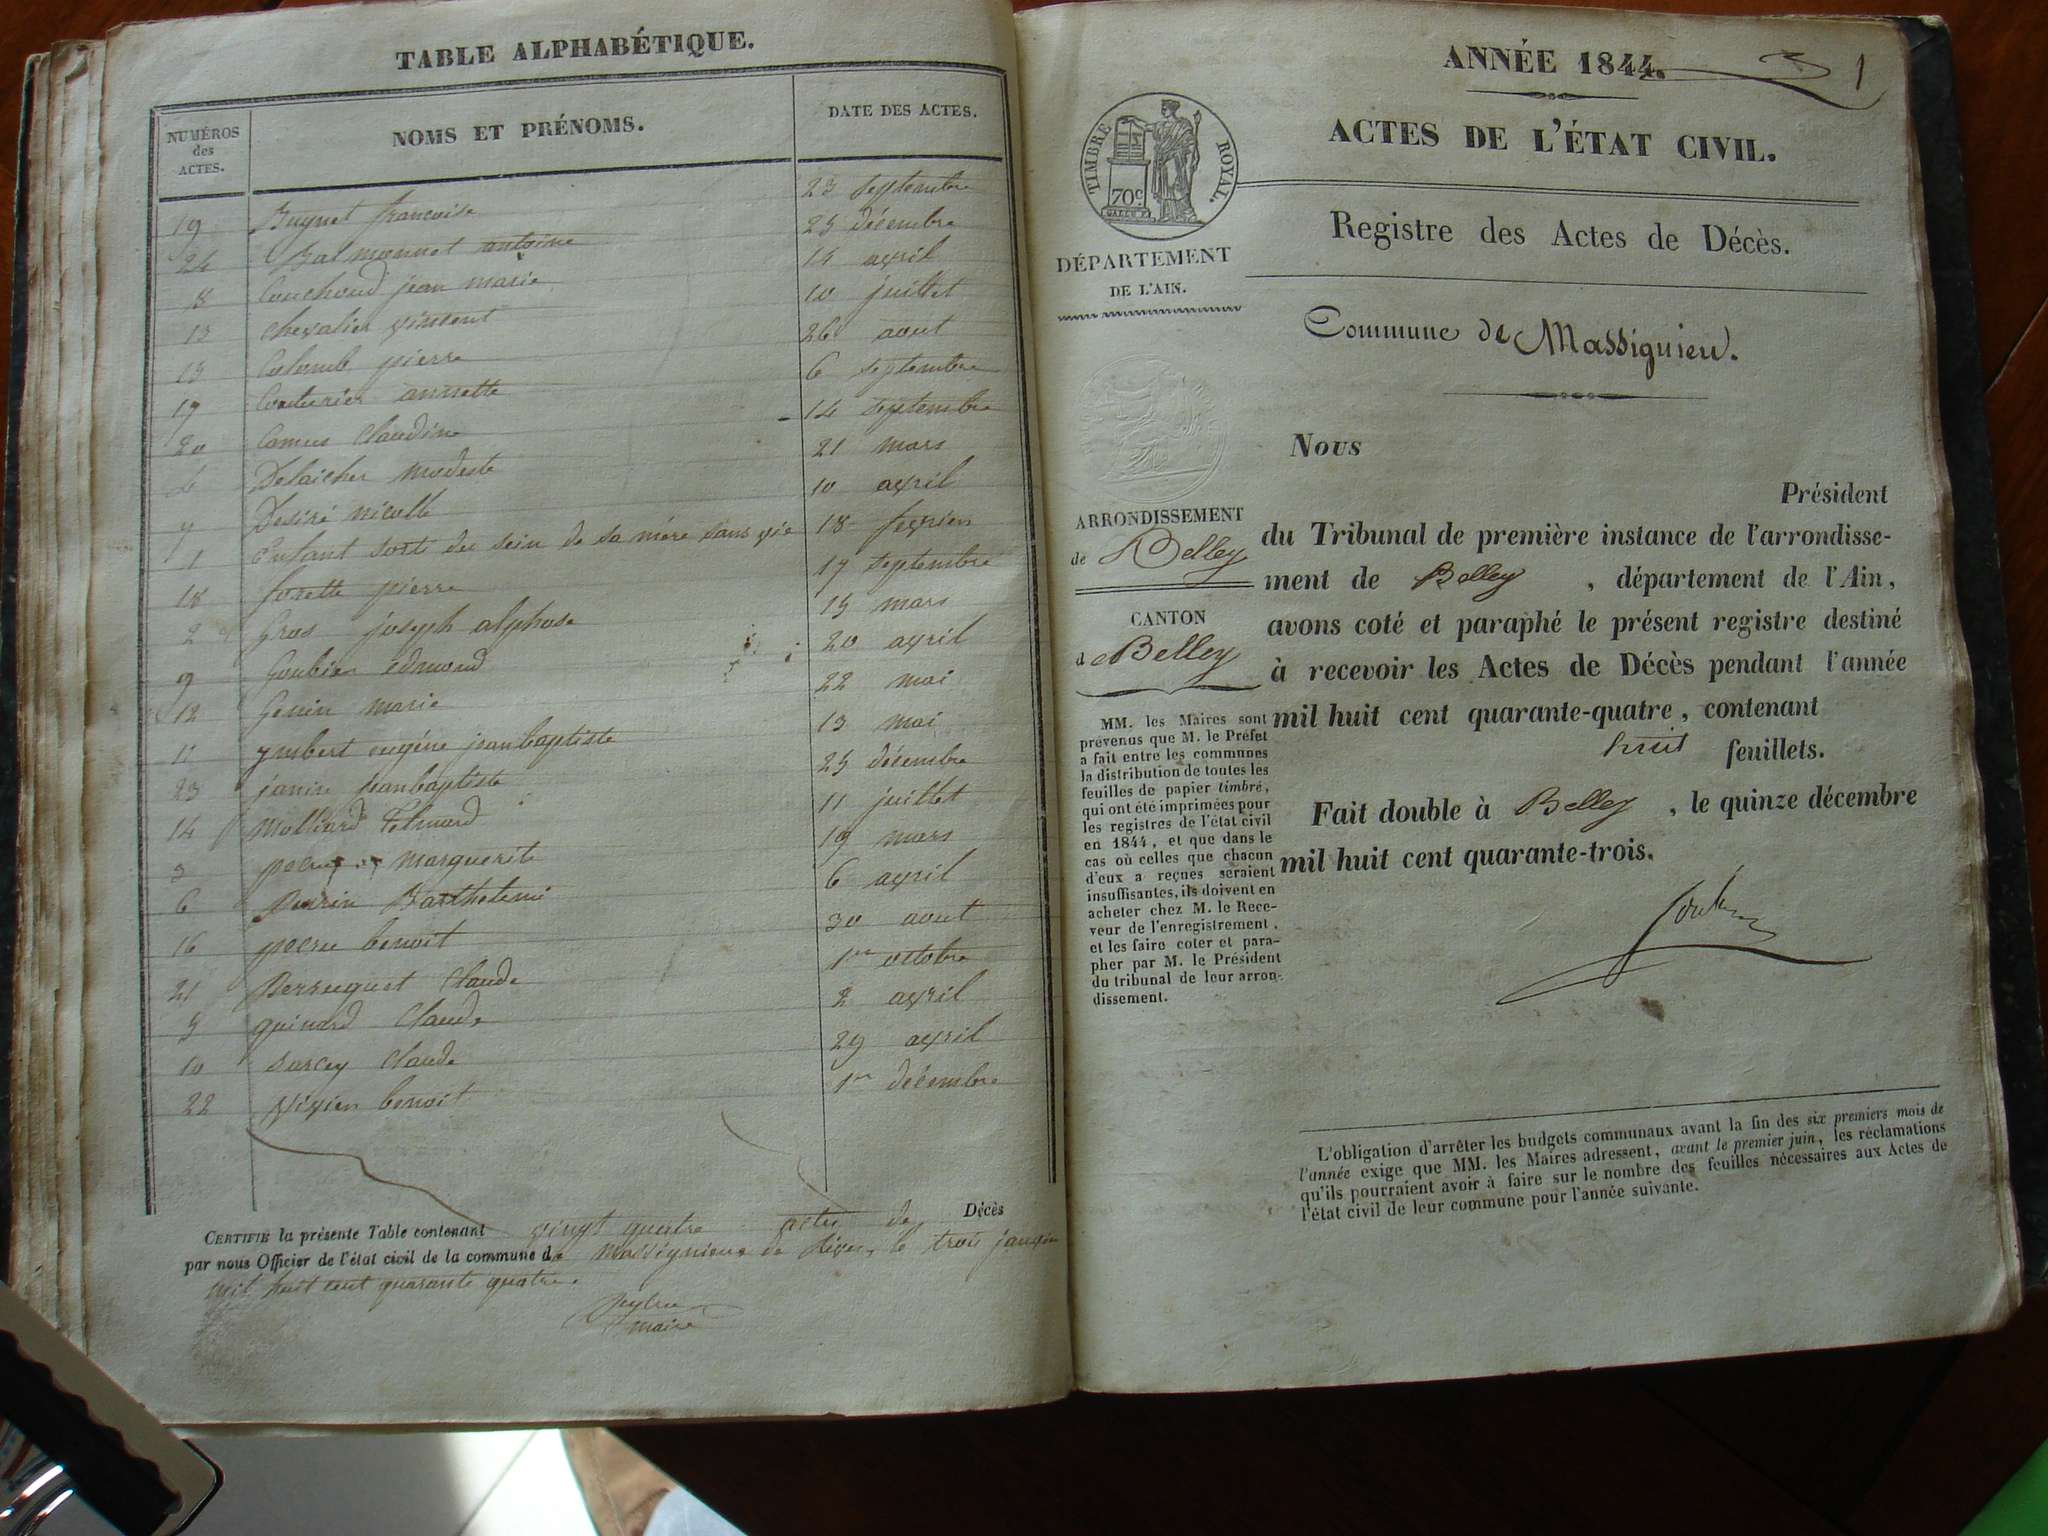 TABLE ALPHABÉTIQUE.
NUMÉROS
des
ACTES.
NOMS ET PRÉNOMS.
DATE DES ACTES.
19 Buynet francoise 23 septembre
24 antoine 25 décembre
8 Couchoud jean marie 15 avril
13 chevalier vincent 10 juillet
15 Colomb pierre 26 aout
17 Couturier annette 6 septembre
20 Camus Claudine 14 septembre
4 Delaicher modeste 21 mars
7 Desiré nicolle 10 avril
1 Enfant sorti du sein de sa mére sans vie 18 fevrier
18 fosette pierre 17 septembre
2 Gros joseph alphose 15 mars
9 Goubier edmond 20 avril
12 Genin marie 22 mai
11 ymbert eugéne jean baptiste 13 mai
23 janin jean baptiste 25 décembre
14 Molliard 11 juillet
3 marguerite 19 mars
6 Perrin Barthelemi 6 avril
16 pocru benoit 30 aout
21 Berruquet Claude 1er octobre
5 quinard Claude 2 avril
10 sarcey Claude 29 avril
22 vivien benoit 1er décembre
CERTIFIE la présente Table contenant vingt quatre actes de Décès
par nous Officier de l'état civil de la commune de Massignieu de Rives, le trois janvier
mil huit cent quarante quatre.
maire
ANNÉE 1844. 1
ACTES DE L'ÉTAT CIVIL.
TIMBRE ROYAL.
70c
Registre des Actes de Décès.
DÉPARTEMENT
DE L'AIN.
Commune de Massignieu.
Nous
Président
ARRONDISSEMENT
de Belley
CANTON
de Belley
du Tribunal de première instance de l'arrondisse-
ment de Belley , département de l'Ain,
avons coté et paraphé le présent registre destiné
à recevoir les Actes de Décès pendant l'année
mil huit cent quarante-quatre, contenant
huit feuillets.
Fait double à Belley , le quinze décembre
mil huit cent quarante-trois.
MM. les Maires sont
prévenus que M. le Préfet
a fait entre les communes
la distribution de toutes les
feuilles de papier timbré,
qui ont été imprimées pour
les registres de l'état civil
en 1844, et que dans le
cas où celles que chacun
d'eux a reçues seraient
insuffisantes, ils doivent en
acheter chez M. le Rece-
veur de l'enregistrement,
et les faire coter et para-
pher par M. le Président
du tribunal de leur arron-
dissement.
L'obligation d'arrêter les budgets communaux avant la fin des six premiers mois de
l'année exige que MM. les Maires adressent, avant le premier juin, les réclamations
qu'ils pourraient avoir à faire sur le nombre des feuilles nécessaires aux Actes de
l'état civil de leur commune pour l'année suivante.